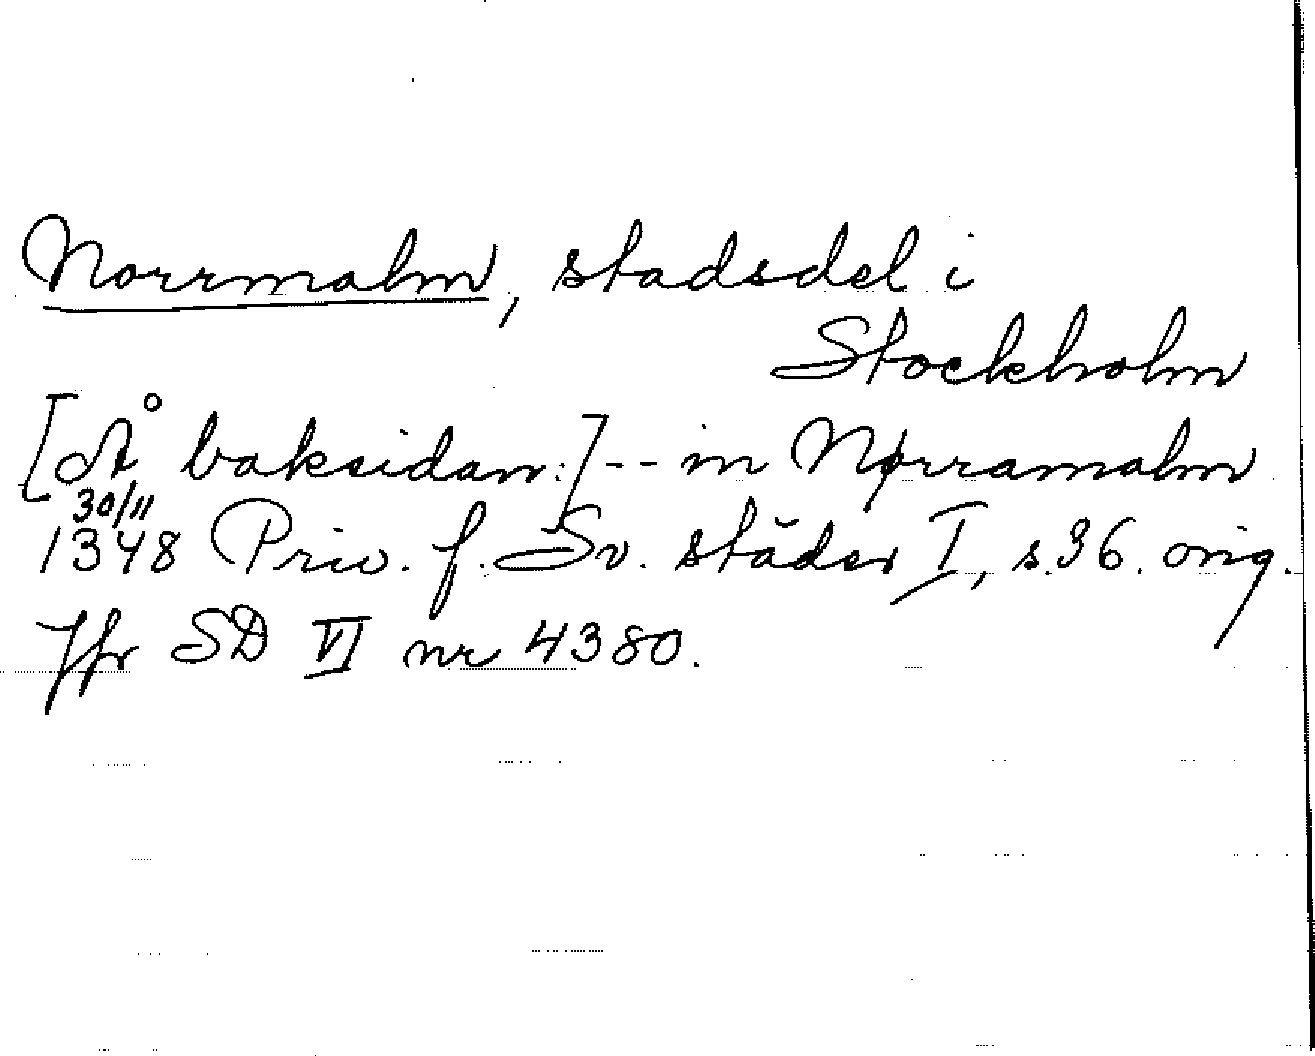 Norrmalm, stadsdel i
Stockholm
[Å baksidan:] -- in Nørramalm
30/11
1348 Priv. f. Sv. städer I, s. 36. orig.
Jfr SD VI nr 4380.